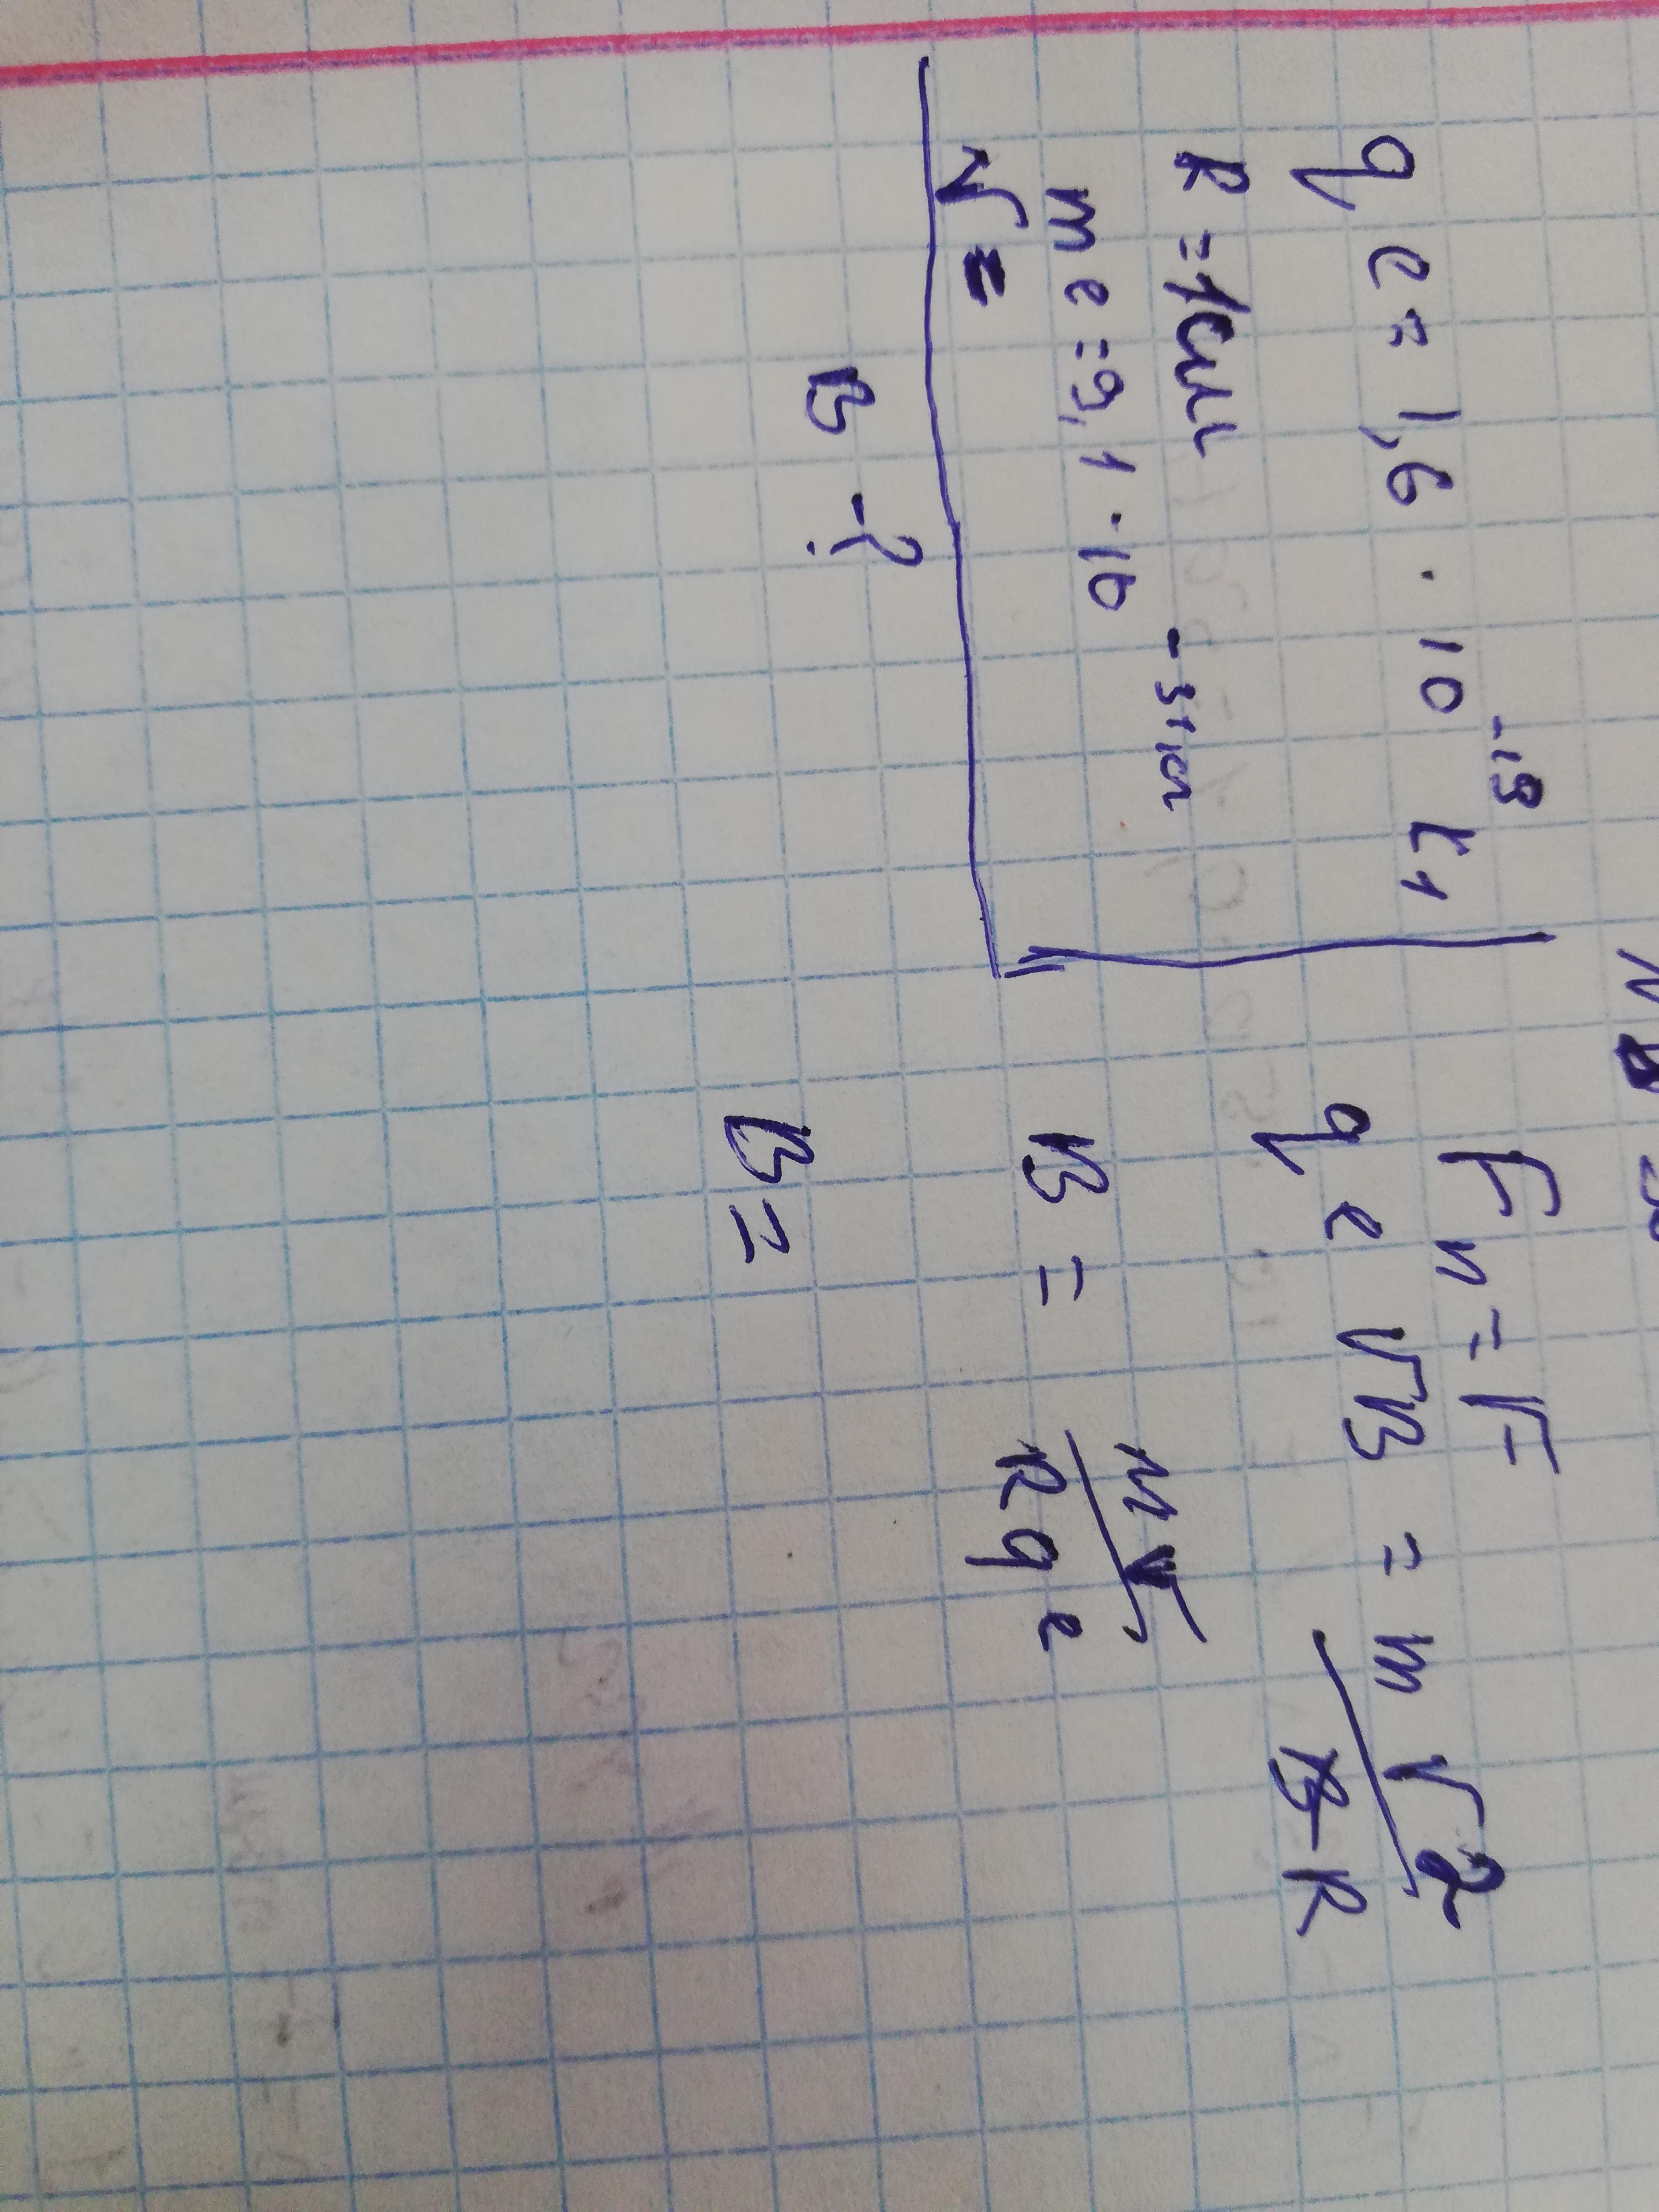 qe = 1,6 · 10⁻¹⁹ Кл
R = 1см
me = 9,1 · 10⁻³¹кг
v =
B - ?
Fл = F
qe v B = m v² / R
B = mv / R qe
B =